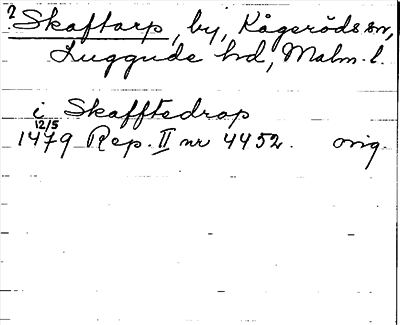 2 Skaftarp, by, Kågeröds sn,
Luggude hd, Malm. l.
i Skafftedrap
12/5
1479 Rep. II nr 4452. orig.